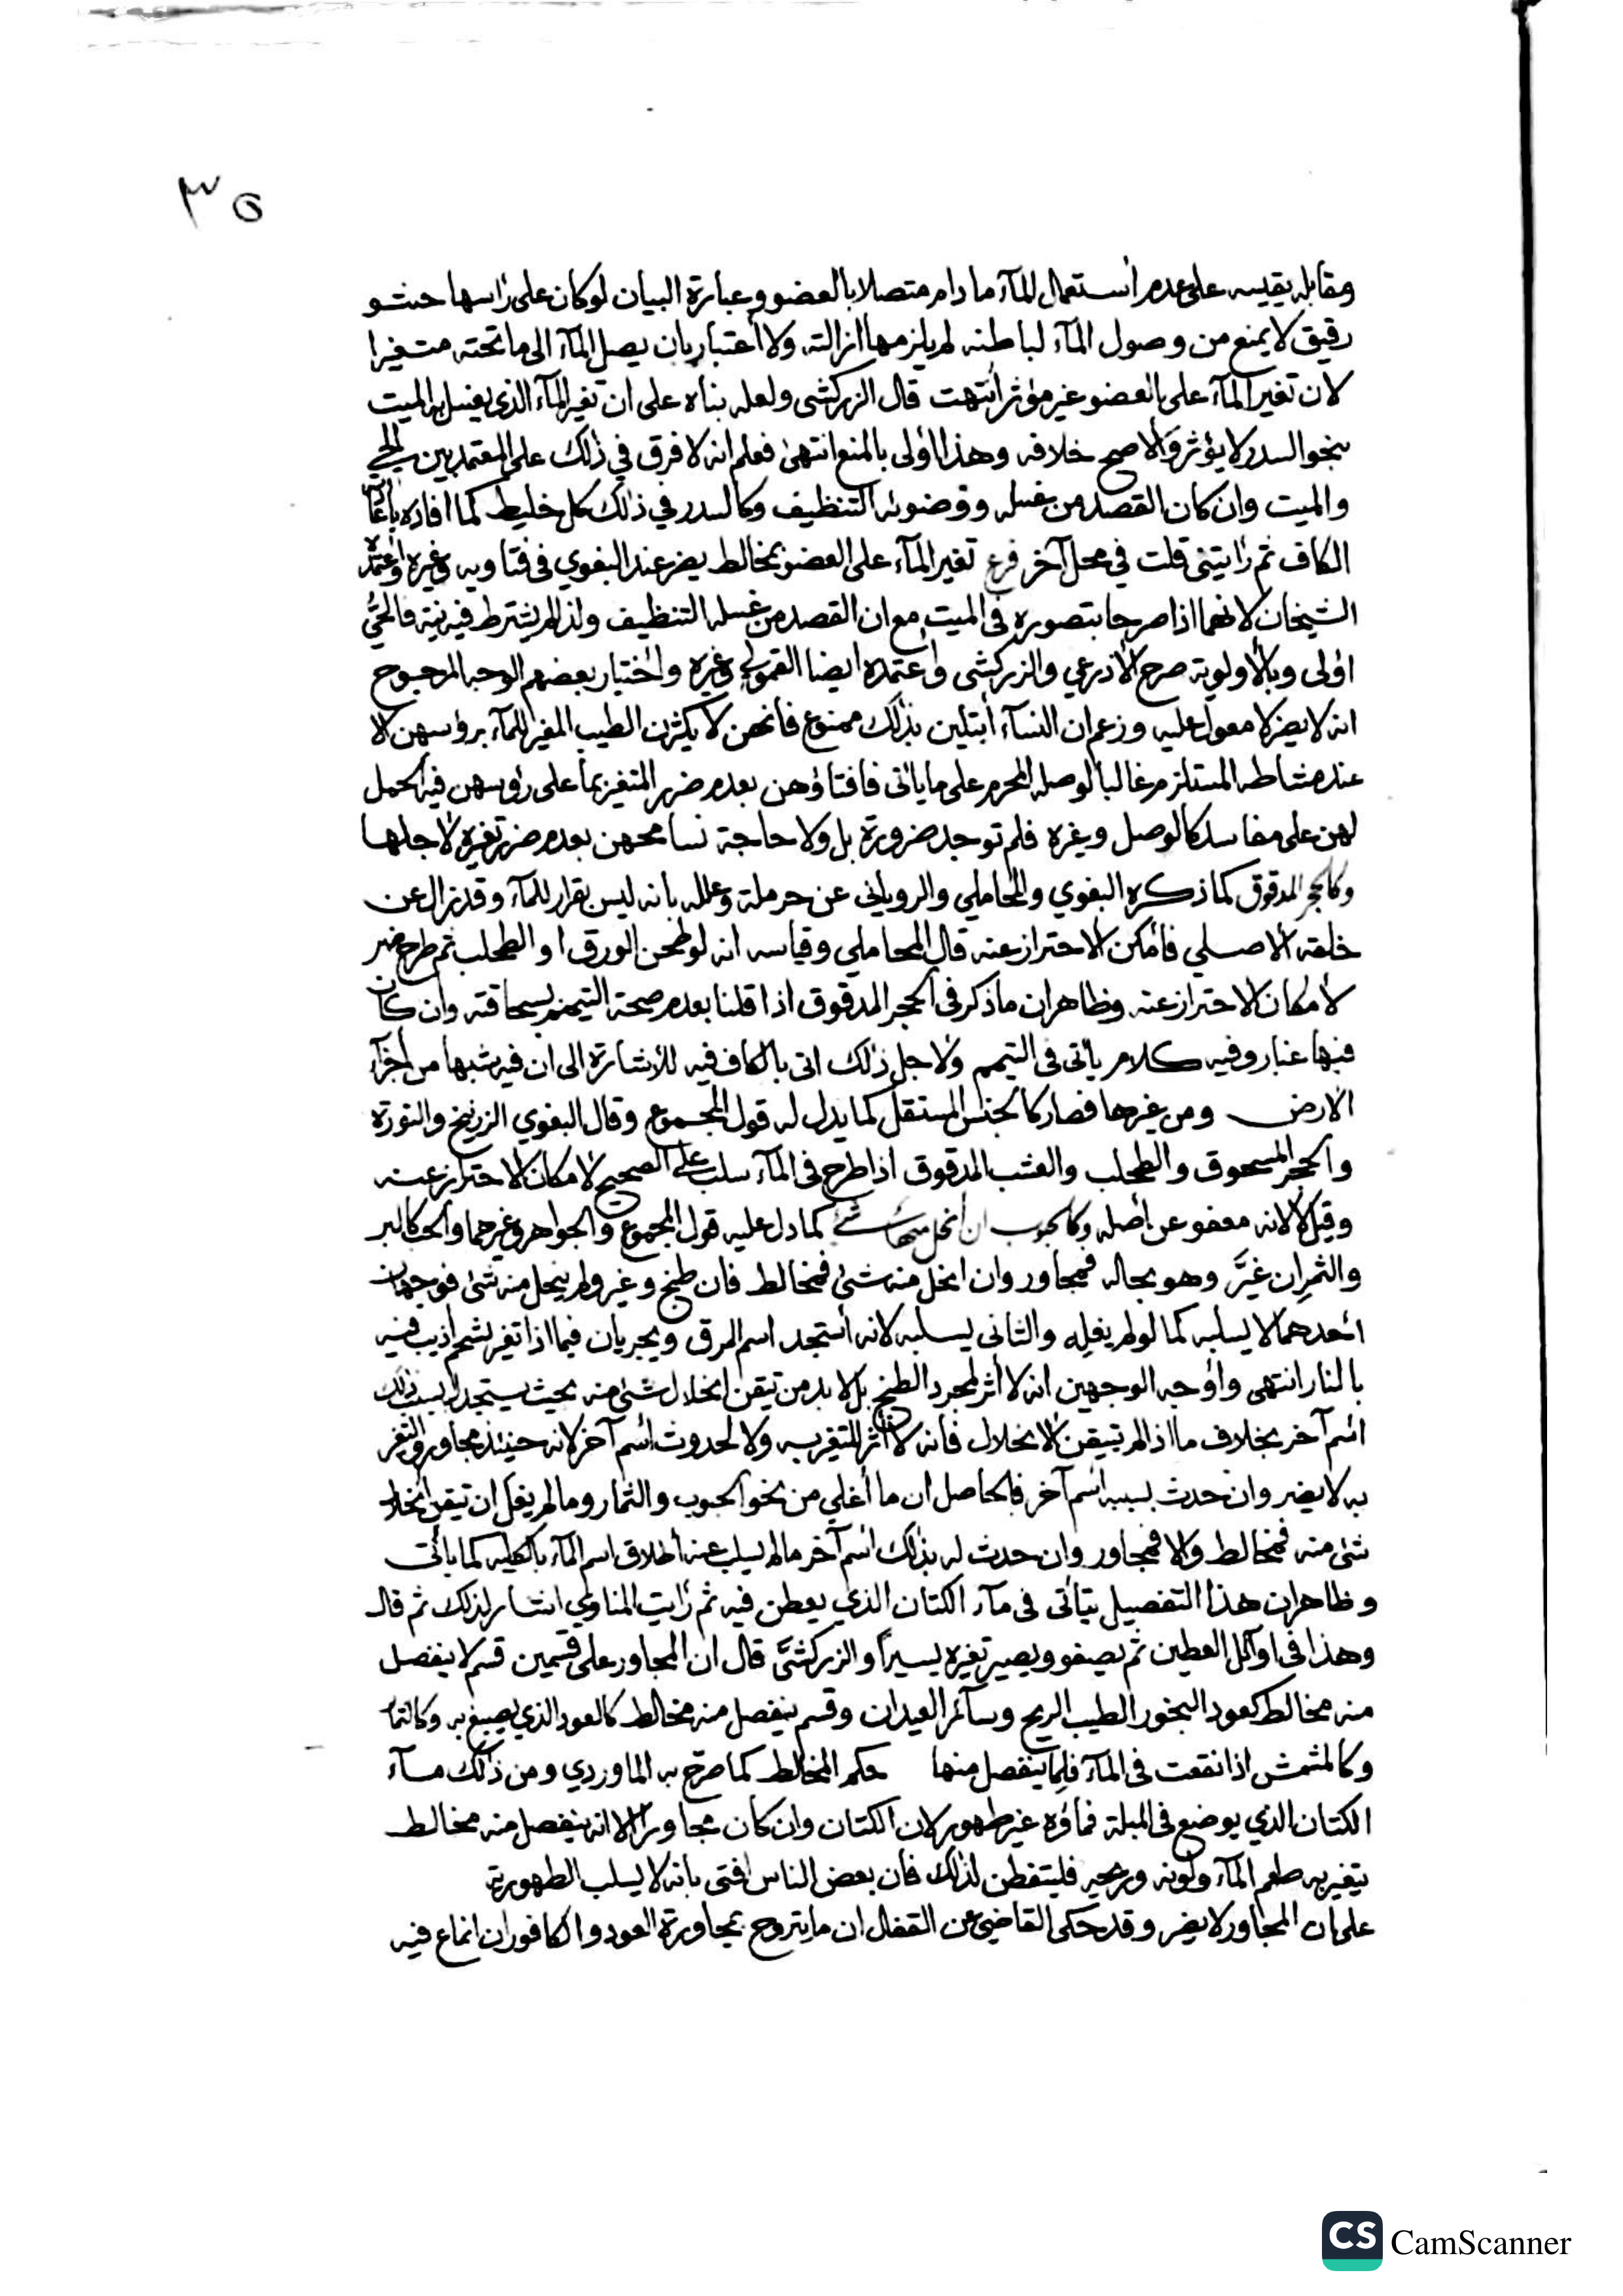 ٣٥
ومقابله يقيسه على عدم أستعمال المآء ما دام متصلا بالعضو وعبارة البيان لو كان على رأسها حشو
رقيق لا يمنع من وصول المآء لباطنه لم يلزمها ازالته ولا أعتبار بان يصل المآء الى ما تحته متغيرا
لان تغير المآء على العضو غير مؤثر أنتهت قال الزركشي ولعله بناه على ان تغير المآء الذي يغسل به الميت
بنحو السدر لا يؤثر والاصح خلافه وهذا اولى بالمنع انتهى فعلم انه لا فرق في ذلك على المعتمد بين الحي
والميت وان كان القصد من غسله ووضوئه التنظيف وكالسدر في ذلك كل خليط كما افاده
الكاف ثم رأيتني قلت في محل آخر فرع تغير المآء على العضو بمخالط يضر عند البغوي في فتاويه وغيره وأعتمده
الشيخان لانهما اذا صرحا بتصوره في الميت مع ان القصد من غسله التنظيف ولذا لم يشترط فيه نية فالحي
اولى وبالأولوية صرح الاذرعي والزركشي وأعتمده ايضا القمولي وغيره واختيار بعضهم الوجه المرجوح
انه لا يضر لا معول عليه وزعم ان النسآء أبتلين بذلك ممنوع فانهن لا يكثرن الطيب المغير للمآء برؤسهن الا
عند مشاطه المستلزم غالبا لوصله المحرم على ما يأتى فافتاؤهن بعدم ضرر المتغير بما على رؤسهن فيه حمل
لهن على مفاسد كالوصل وغيره فلم توجد ضرورة بل ولا حاجة نسامحهن بعدم ضرر تغيره لاجلها
وكالحجر المدقوق كما ذكره البغوي والمحاملي والروياني عن حرملة وعلله بانه ليس بقرار للمآء وقد زال عن
خلقته الاصلي فأمكن الاحتراز عنه قال المحاملي وقياسه انه لو طحن الورق او الطحلب ثم طرح ضر
لأمكان الاحتراز عنه وظاهر ان ما ذكر في الحجر المدقوق اذا قلنا بعدم صحة التيمم بسحاقته وان كان
فيها غبار وفيه كلام يأتى في التيمم ولاجل ذلك اتى بالكاف فيه للأشارة الى ان فيه شبها من أجزآء
الارض ومن غيرها فصار كالجنس المستقل كما يدل له قول المجموع وقال البغوي الزرنيخ والنورة
والحجر المسحوق والطحلب والعشب المدقوق اذا طرح في المآء سلب على الصحيح لامكان الاحتراز عنه
وقيل لا لانه معفو عن أصله وكالحبوب ان أنحل منها شئ كما دل عليه قول المجموع والجواهر وغيرهما والحب كالبر
والثمر ان غيَّر وهو بحاله فمجاور وان انحل منه شئ فمخالط فان طبخ وغير ولم ينحل منه شئ فوجهان
احدهما لا يسلبه كما لو لم يغله والثاني يسلبه لانه أستجد اسم المرق ويجريان فيما اذا تغير بشحم اذيب فيه
بالنار انتهى وأوجه الوجهين انه لا أثر لمجرد الطبخ بل لا بد من تيقن انحلال شئ منه بحيث يستجد له بسبب ذلك
ائسم آخر بخلاف ما اذا لم يتيقن الانحلال فانه لا أثر للتغير به ولا لحدوث أسم آخر لانه حينئذ مجاور والتغير
به لا يضر وان حدث بسببه أسم آخر فالحاصل ان ما أغلي من نحو الحبوب والثمار وما لم يغل ان تيقن انحلال
شئ منه فمخالط والا فمجاور وان حدث له بذلك أسم آخر ما لم يسلب عنه أطلاق اسم المآء بالكليه كما يأتى
وظاهر ان هذا التفصيل يتأتى في مآء الكتان الذي يعطن فيه ثم رأيت المناوي اشار لذلك ثم قال
وهذا في اوآئل العطين ثم يصفو ويصير تغيره يسيراً والزركشيَّ قال ان المجاور على قسمين قسم لا ينفصل
منه مخالط كعود البخور الطيب الريح وسآئر العيدان وقسم ينفصل منه مخالط كالعود الذي يصبغ به وكالتمر
وكالمشمش اذا نقعت في المآء فلما ينفصل منها حكم المخالط كما صرح به الماوردي ومن ذلك مآء
الكتان الذي يوضع في المبلة فمآؤه غير طهور لان الكتان وان كان مجاورا الا انه ينفصل منه مخالط
يتغير به طعم المآء ولونه وريحه فليتفطن لذلك فان بعض الناس افتى بانه لا يسلب الطهورية
علمان المجاور لا يضر وقد حكى القاضي عن القفال ان ما يتروح بمجاورة العود والكافور ان انماع فيه
CS CamScanner